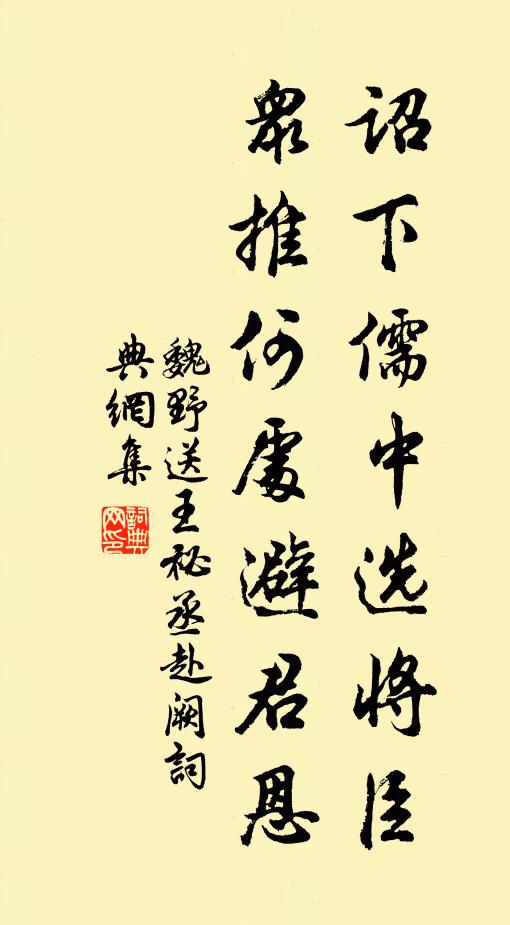 詔下儒中选將臣
衆推何處避君恩
魏野送王秘丞赴阙詞
典網集
詞典
网印